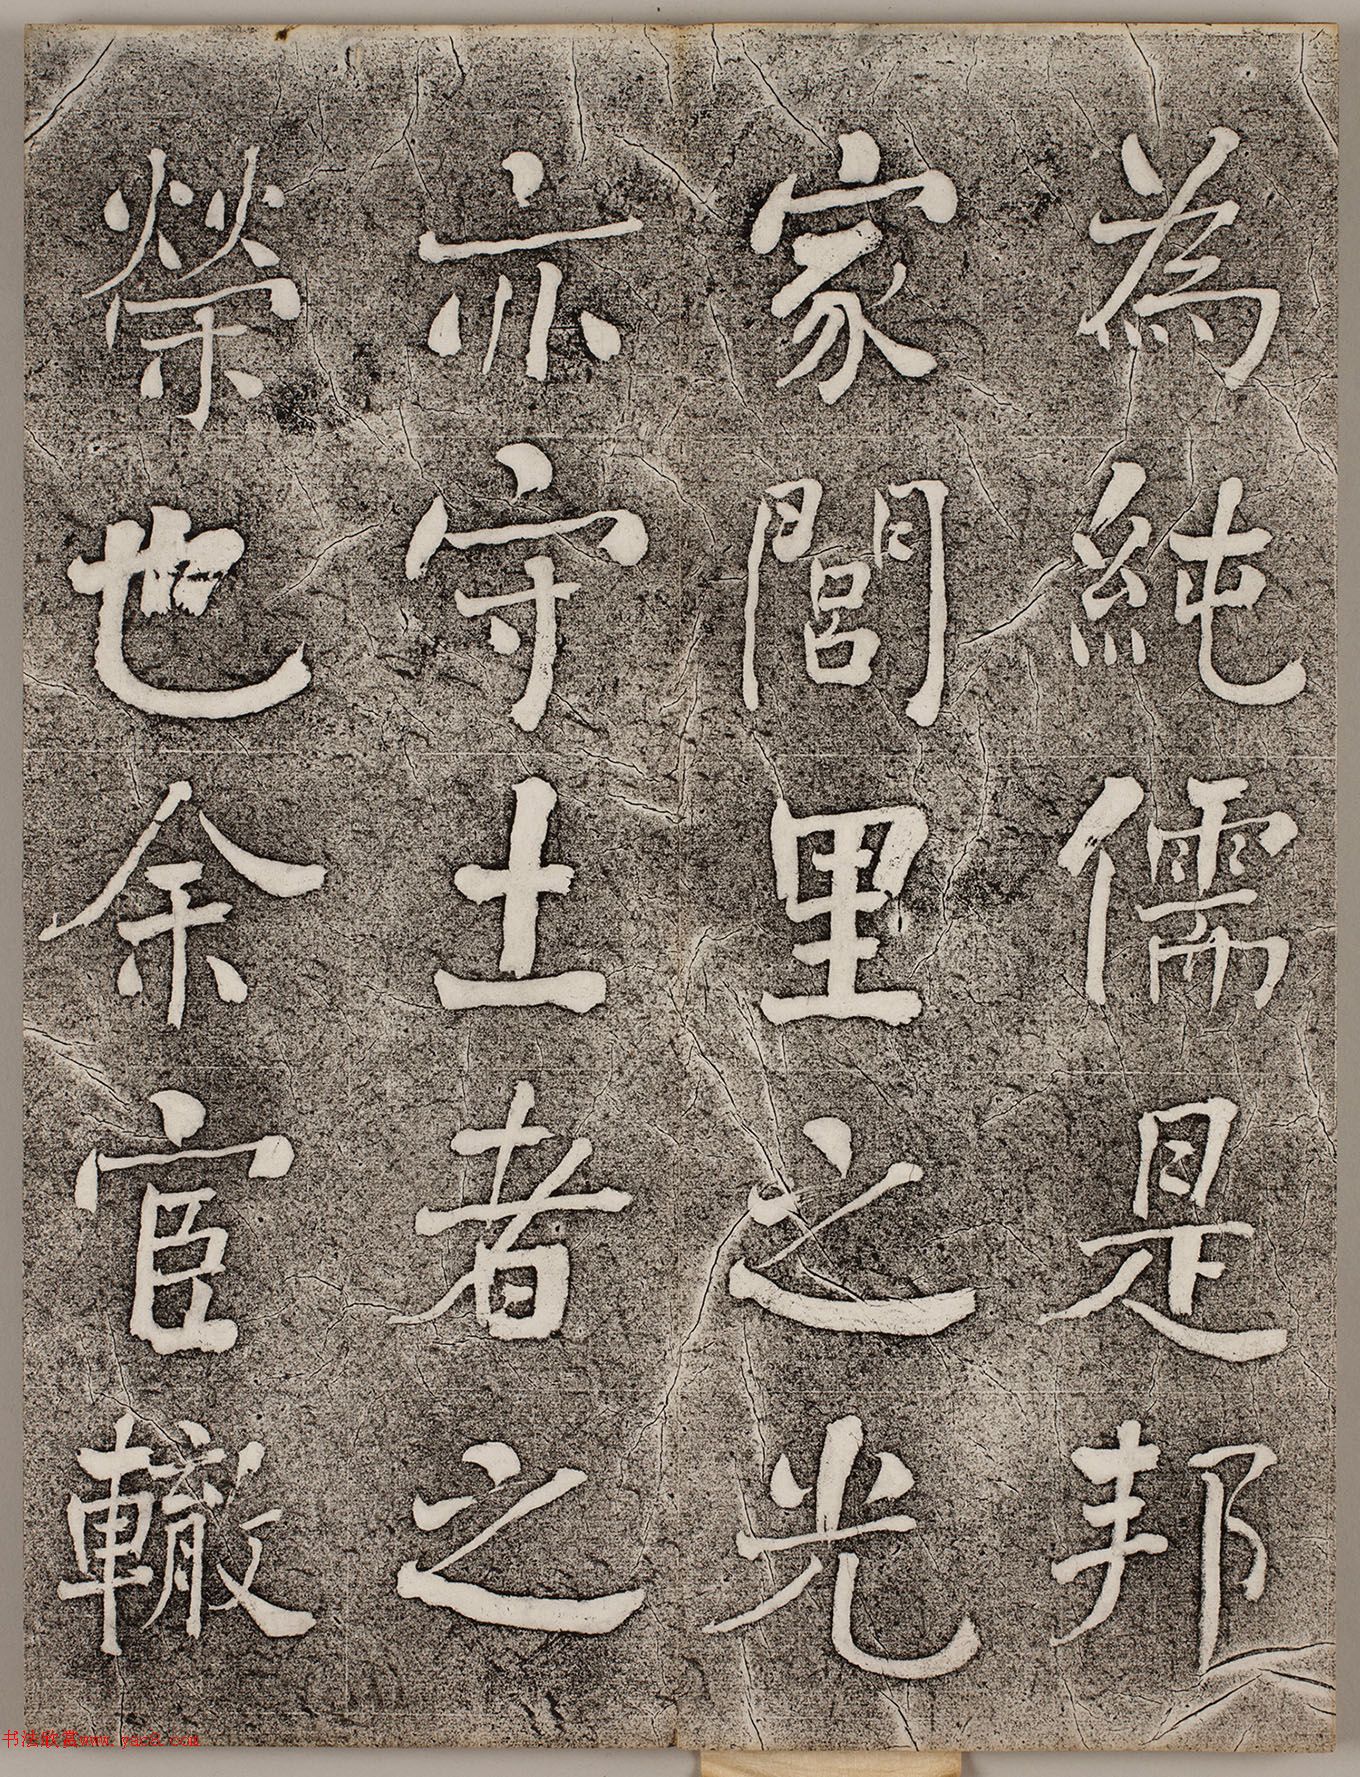 為純儒是邦
家閭里之光
亦守土者之
榮也余宦轍
书法欣赏www.yac8.com